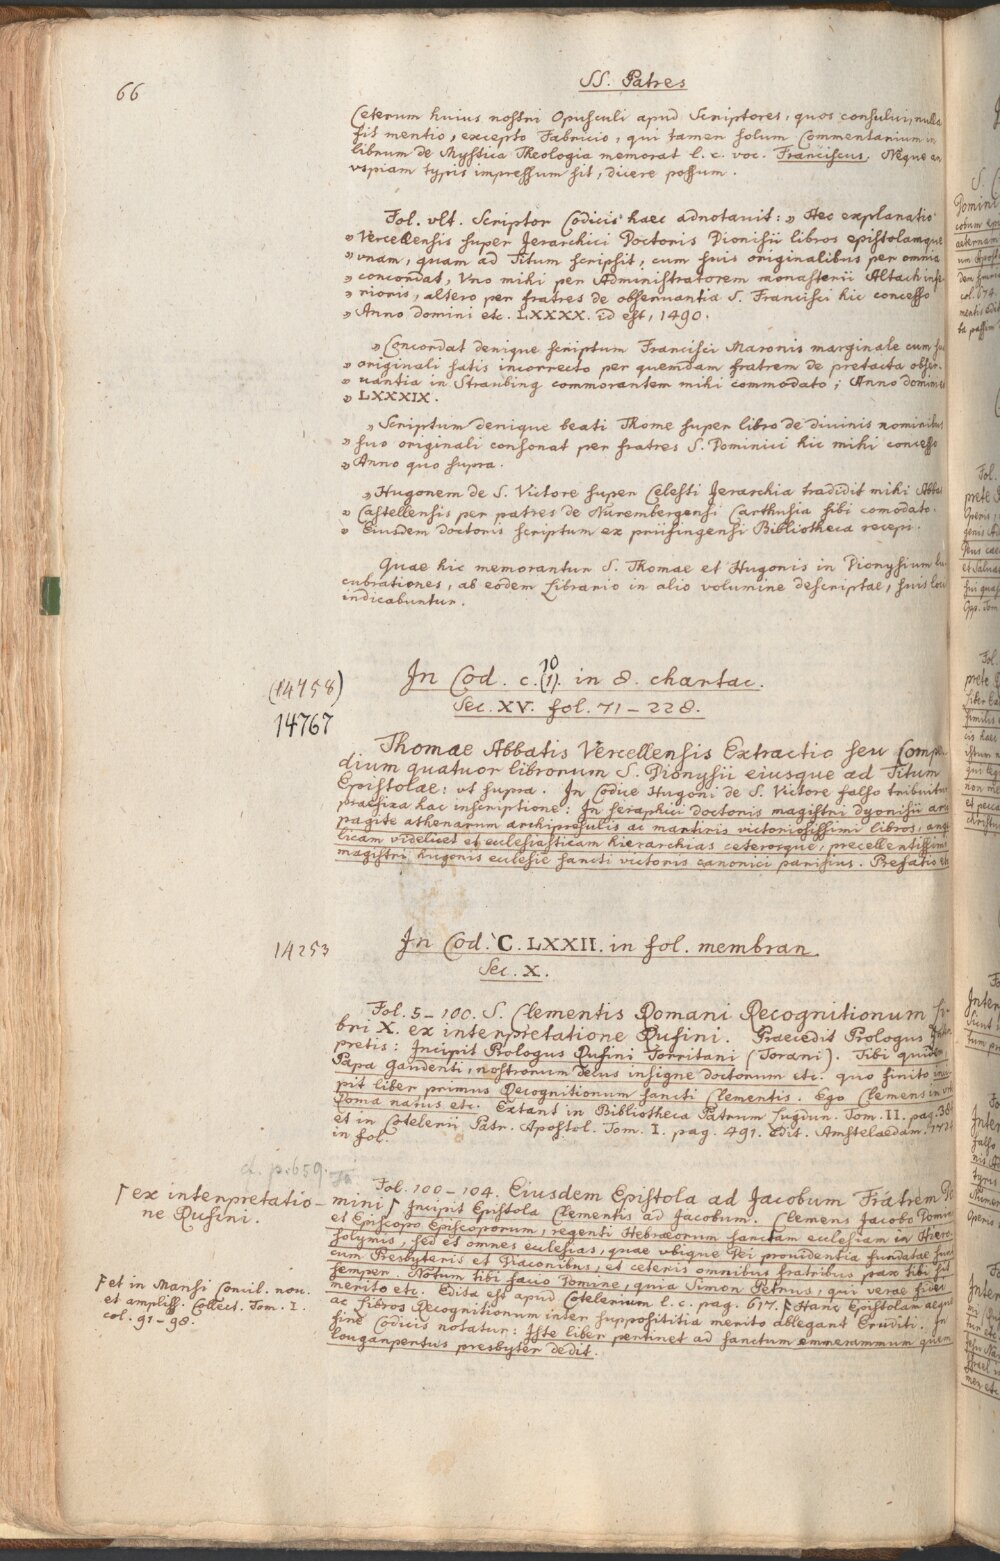 66
SS. Patres
Ceterum huius nostri Opusculi apud Scriptores, quos consului, nulla
fit mentio, excepto Fabricio, qui tamen solum Commentarium in
librum de Mystica Theologia memorat l. c. voc. Franciscus. Neque an
vspiam typis impressum sit, dicere possum.
Fol. vlt. Scriptor Codicis haec adnotauit: „ Hec explanatio
„ Vercellensis super Jerarchici Doctoris Dionisii libros epistolamque
„ vnam, quam ad Titum scripsit, cum suis originalibus per omnia
„ concordat, Vno mihi per Administratorem monasterii Altach infe-
„ rioris, altero per fratres de obseruantia S. Francisci hic concesso
„ Anno domini etc. LXXXX. id est, 1490.
„ Concordat denique scriptum Francisci Maronis marginale cum
„ originali satis incorrecto per quemdam fratrem de pretacta obser-
„ uantia in Straubing commorantem mihi commodato; Anno domini
„ LXXXIX.
„ Scriptum denique beati Thome super libro de diuinis nominibus
„ suo originali consonat per fratres S. Dominici hic mihi concesso
„ Anno quo supra.
„ Hugonem de S. Victore super Celesti Jerarchia tradidit mihi Abbas
„ Castellensis per patres de Nurembergensi Carthusia sibi comodato.
„ Eiusdem doctoris scriptum ex priifingensi Bibliotheca recepi.
Quae hic memorantur S. Thomae et Hugonis in Dionysium lu-
cubrationes, ab eodem Librario in alio volumine descriptae, suis loci
indicabuntur.
(14758)
14767
10
In Cod. c. (1). in 8. chartac.
Sec. XV. fol. 71 – 228.
Thomae Abbatis Vercellensis Extractio seu Compen
dium quatuor librorum S. Dionysii eiusque ad Titum
Epistolae: vt supra. In Codice Hugoni de S. Victore falso tribuitur
praefixa hac inscriptione: In seraphici doctoris magistri dyonisii ario
pagite athenarum archipresulis ac martiris victoriosissimi libros, ange
licam videlicet et ecclesiasticam hierarchias ceterosque, precellentissimi
magistri hugonis ecclesie sancti victoris canonici parisius. Prefatio etc
14253
In Cod. C. LXXII. in fol. membran.
Sec. X.
Fol. 5 – 100. S. Clementis Romani Recognitionum li-
bri X. ex interpretatione Rufini. Praecedit Prologus
pretis: Incipit Prologus Rufini Torritani (Torani). Tibi quidem
Papa Gaudenti, nostrorum decus insigne doctorum etc. quo finito inci
pit liber primus Recognitionum sancti Clementis. Ego Clemens in vrbe
Roma natus etc. Extant in Bibliotheca Patrum Lugdun. Tom. II. pag. 38
et in Cotelerii Patr. Apostol. Tom. I. pag. 491. Edit. Amstelaedam. 1724
in fol.
cf. p. 659.
Fol. 100 – 104. Eiusdem Epistola ad Jacobum Fratrem Do
mini ⌈ Incipit Epistola Clementis ad Jacobum. Clemens Jacobo Domino
et Episcopo Episcoporum, regenti Hebraeorum sanctam ecclesiam in Hiero-
solymis, sed et omnes ecclesias, quae vbique Dei prouidentia fundatae sunt
cum Presbyteris et Diaconibus, et ceteris omnibus fratribus pax tibi sit
semper. Notum tibi facio Domine, quia Simon Petrus, qui verae fidei
merito etc. Edita est apud Cotelerium l. c. pag. 617. ⌈ Hanc Epistolam aeque
ac libros Recognitionum inter supposititia merito ablegant Eruditi. In
fine Codicis notatur: Iste liber pertinet ad sanctum emmerammum quem
louganpertus presbyter dedit.
⌈ ex interpretatio-
ne Rufini.
⌈ et in Mansi Concil. nou.
et ampliss. Collect. Tom. I.
col. 91 – 98.